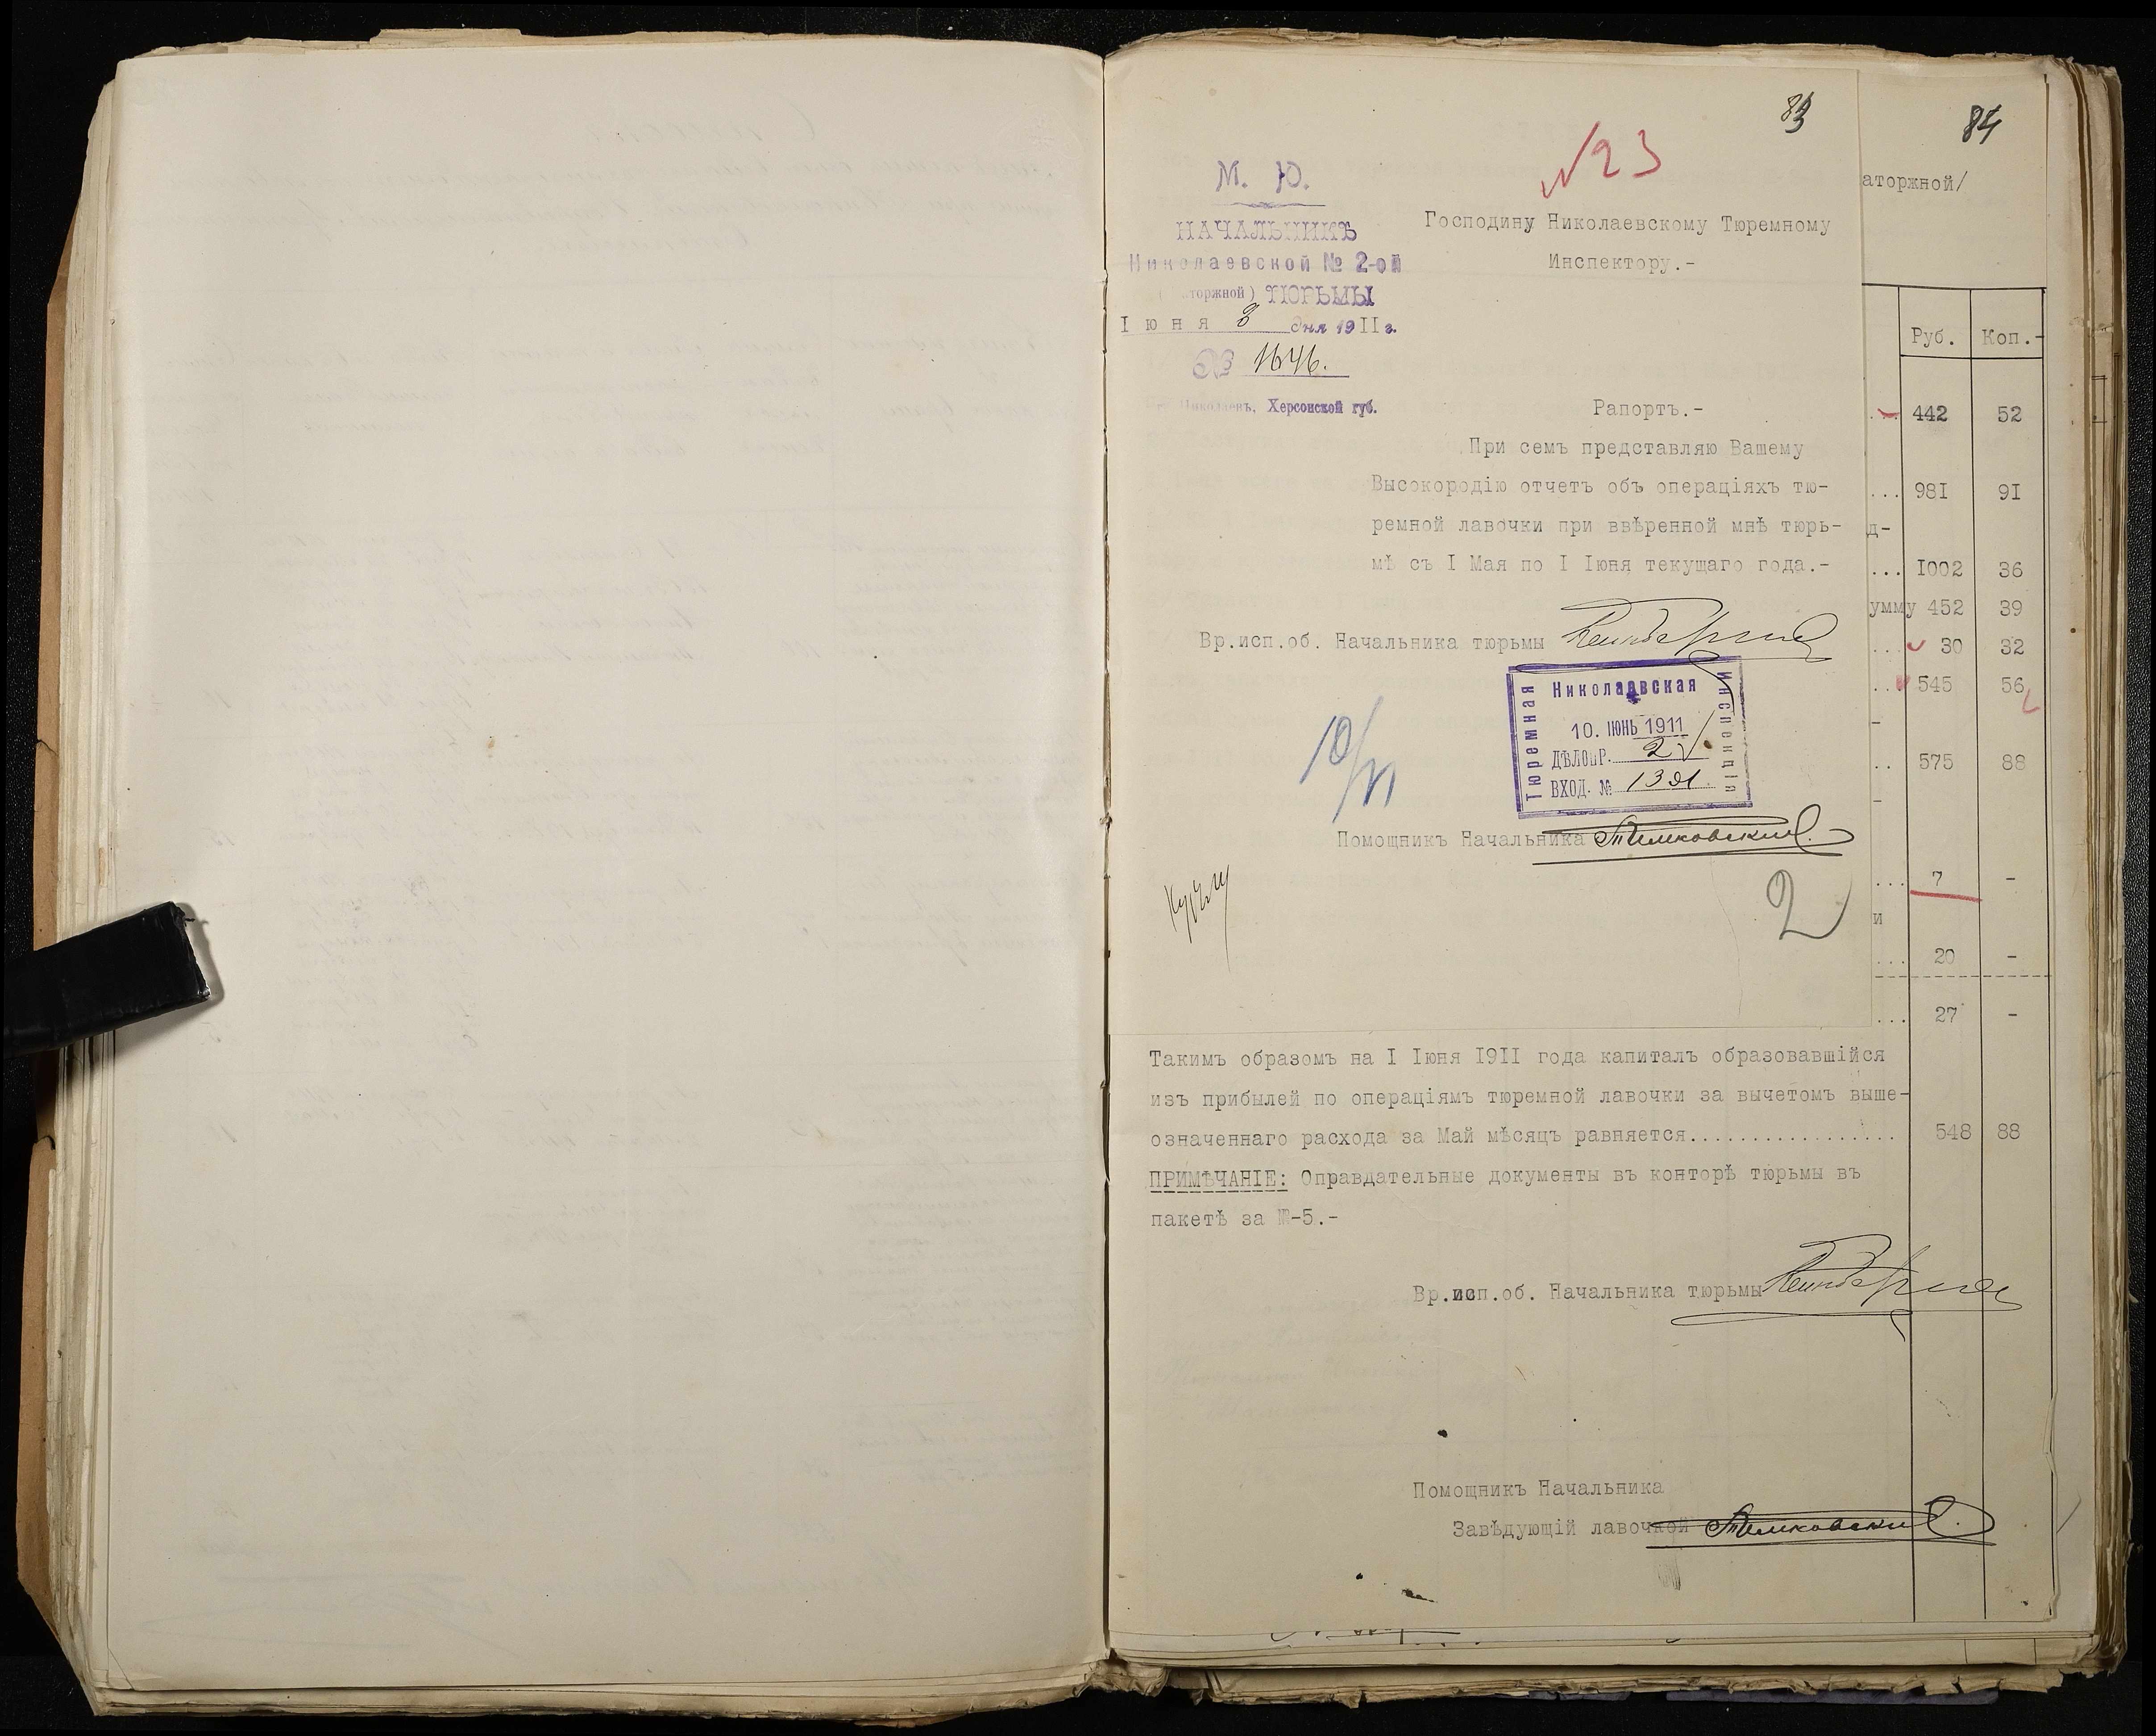 83
84
№23
М. Ю.
НАЧАЛЬНИКЪ
Николаевской № 2-ой
торжной) ТЮРЬМЫ
Iюня 8 дня 19II г.
№ 1646.
Николаевъ, Херсонской губ.
Господину Николаевскому Тюремному
Инспектору.-
Рапортъ.-
При семъ представляю Вашему
Высокородію отчетъ объ операціяхъ тю-
ремной лавочки при ввѣренной мнѣ тюрь-
мѣ съ I Мая по I Iюня текущаго года.-
Вр.исп.об. Начальника тюрьмы
Николаевская
Тюремная
Инспекція
10. ІЮНЬ 1911
ДѢЛОПР. 2
ВХОД. № 1391
10/VI
Помощникъ Начальника Темковскій.
2
аторжной/
Руб. Коп.-
... 442 52
... 98I 9I
д-
... I002 36
умму 452 39
... 30 32
... 545 56
-
.. 575 88
-
... 7 -
и
... 20 -
... 27 -
Такимъ образомъ на I Iюня I9II года капиталъ образовавшійся
изъ прибылей по операціямъ тюремной лавочки за вычетомъ выше-
означеннаго расхода за Май мѣсяцъ равняется................. 548 88
ПРИМѢЧАНІЕ: Оправдательные документы въ конторѣ тюрьмы въ
пакетѣ за №-5.-
Вр.исп.об. Начальника тюрьмы
Помощникъ Начальника
Завѣдующій лавочкой Темковскій.